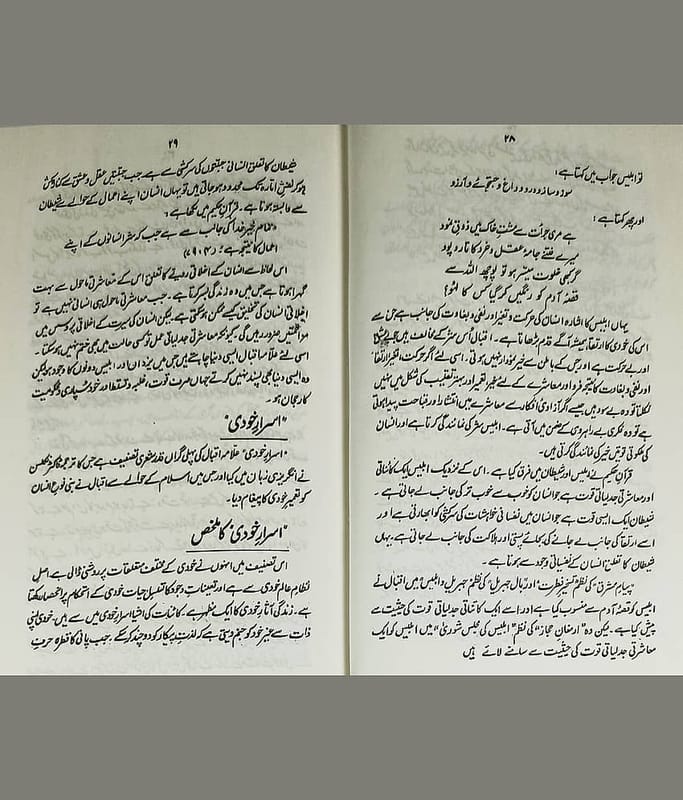 ۲۸
تو ابلیس جواب میں کہتا ہے:
سوز و ساز و درد و داغ و جستجوئے و آرزو
اور پھر کہتا ہے:
ہے مری جرأت سے مشتِ خاک میں ذوقِ نمو
میرے فتنے جامۂ عقل و خرد کا تار و پو
گر کبھی خلوت میسر ہو تو پوچھ اللہ سے
قصۂ آدم کو رنگیں کر گیا کس کا لہو؟
یہاں ابلیس کا اشارہ انسان کی حرکت و تغیر اور نفی و بغاوت کی جانب ہے جس سے
اس کی خودی کا ارتقا ہمیشہ آگے قدم بڑھاتا ہے۔ اقبال اُس شر کے مخالف ہیں جو
اور بے حرکت ہے اور جس کے باطن سے خیر نمودار نہیں ہوتی۔ اسی لئے اگر حرکت، تغیر، ارتقا
اور نفی و بغاوت کا نتیجہ فرد اور معاشرے کے لئے خیر اور بہتر کی شکل میں نہیں
نکلتا تو وہ بے سود ہیں جیسے اگر آزادیٔ افکار سے معاشرے میں انتشار اور قباحت پیدا ہوتی
ہے تو وہ فکری بے راہروی کے ضمن میں آتی ہے۔ ابلیس شر کی نمائندگی کرتا ہے اور انسان
کی ملکوتی قوتیں خیر کی نمائندگی کرتی ہیں۔
قرآنِ حکیم نے ابلیس اور شیطان میں فرق کیا ہے۔ اس کے نزدیک ابلیس ایک کائناتی
اور معاشرتی جدلیاتی قوت ہے جو انسان کو خوب سے خوب تر کی جانب لے جاتی ہے۔
شیطان ایک ایسی قوت ہے جو انسان میں نفسانی خواہشات کی سرکشی کو ابھارتی ہے اور
اسے ارتقا کی جانب لے جانے کی بجائے پستی اور ہلاکت کی جانب لے جاتی ہے۔ یہاں
شیطان کا تعلق انسان کے نفسیاتی وجود سے ہوتا ہے۔
"پیامِ مشرق" کی نظم "تسخیرِ فطرت" اور "بالِ جبریل" کی نظم "جبریل و ابلیس" میں اقبال نے
ابلیس کو قصۂ آدم سے منسوب کیا ہے اور اسے ایک کائناتی جدلیاتی قوت کی حیثیت سے
پیش کیا ہے۔ لیکن وہ "ارمغانِ حجاز" کی نظم "ابلیس کی مجلسِ شوریٰ" میں ابلیس کو ایک
معاشرتی جدلیاتی قوت کی حیثیت سے سامنے لائے ہیں
۲۹
شیطان کا تعلق انسانی جبلتوں کی سرکشی سے ہے جب جبلتیں عقل و عشق سے کنارہ کش
ہو کر لفظ انا تک محدود ہو جاتی ہیں تو یہاں انسان اپنے اعمال کے حوالے سے شیطان
سے وابستہ ہوتا ہے۔ قرآنِ حکیم میں لکھا ہے:
"تمام خیر خدا کی جانب سے ہے جب کہ شر انسانوں کے اپنے
اعمال کا نتیجہ ہے" (۴، ۷۹)
اس لحاظ سے انسان کے اخلاقی رویے کا تعلق اس کے معاشرتی ماحول سے بہت
گہرا ہوتا ہے جس میں وہ زندگی بسر کرتا ہے۔ جب معاشرتی ماحول ہی انسانی نہیں ہے تو
اخلاقی انسان کی تخلیق کیسے ممکن ہو سکتی ہے لیکن انسان کی سیرت کے اخلاقی پروسس میں
مزاحمتیں ضرور ہیں گی کیونکہ معاشرتی جدلیاتی عمل تو کسی حالت میں بھی ختم نہیں ہو سکتا۔
اسی لئے علامہ اقبال ایسی دنیا چاہتے ہیں جس میں یزداں اور ابلیس دونوں کا وجود ہو لیکن
وہ ایسی دنیا بھی پسند نہیں کرتے جہاں صرف قوت، غلبہ و تسلط اور خود سپاری و محکومیت
کا رجحان ہو۔
"اسرارِ خودی"
"اسرارِ خودی" علامہ اقبال کی پہلی گراں قدر شعری تصنیف ہے جس کا ترجمہ ڈاکٹر نکلسن
نے انگریزی زبان میں کیا اور جس میں اسلام کے حوالے سے اقبال نے بنی نوع انسان
کو تعمیرِ خودی کا پیغام دیا۔
"اسرارِ خودی" کا ملخص
اس تصنیف میں انہوں نے خودی کے مختلف متعلقات پر روشنی ڈالی ہے۔ اصلِ
نظامِ عالم خودی سے ہے اور تعیناتِ وجود کا تسلسلِ حیات خودی کے استحکام پر انحصار رکھتا
ہے۔ زندگی آثارِ خودی کا ایک مظہر ہے۔ کائنات کی اشیا اسرارِ خودی میں سے ہیں۔ خودی اپنی
ذات سے غیر خود کو جنم دیتی ہے کہ لذتِ پیکار کو دو چند کر سکے۔ جب پانی کا قطرہ حرفِ